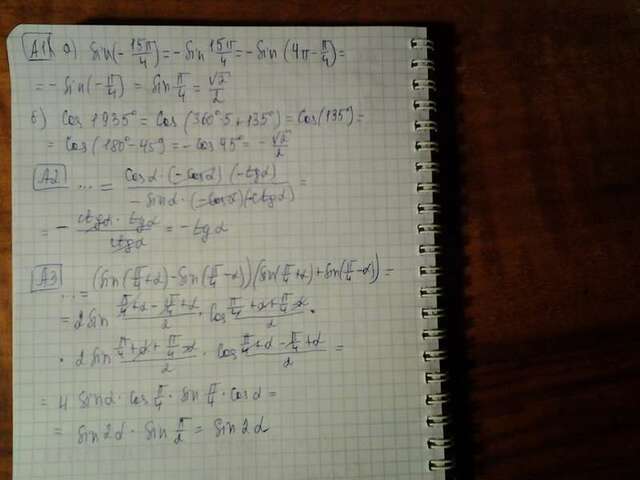 А1 а) sin(-15π/4) = -sin 15π/4 = -sin(4π - π/4) =
= -sin(-π/4) = sin π/4 = √2/2
б) cos 1935° = cos(360°·5 + 135°) = cos(135°) =
= cos(180° - 45°) = -cos 45° = -√2/2
А2 ... = cosα·(-cosα)(-tgα) / -sinα·(-cosα)(-ctgα) =
= - ctgα·tgα / ctgα = -tgα
А3 ... = (sin(π/4+α) - sin(π/4-α))(sin(π/4+α) + sin(π/4-α)) =
= 2 sin (π/4+α-π/4+α)/2 · cos (π/4+α+π/4-α)/2 ·
· 2 sin (π/4+α+π/4-α)/2 · cos (π/4+α-π/4+α)/2 =
= 4 sinα·cos π/4·sin π/4·cosα =
= sin2α·sin π/2 = sin2α